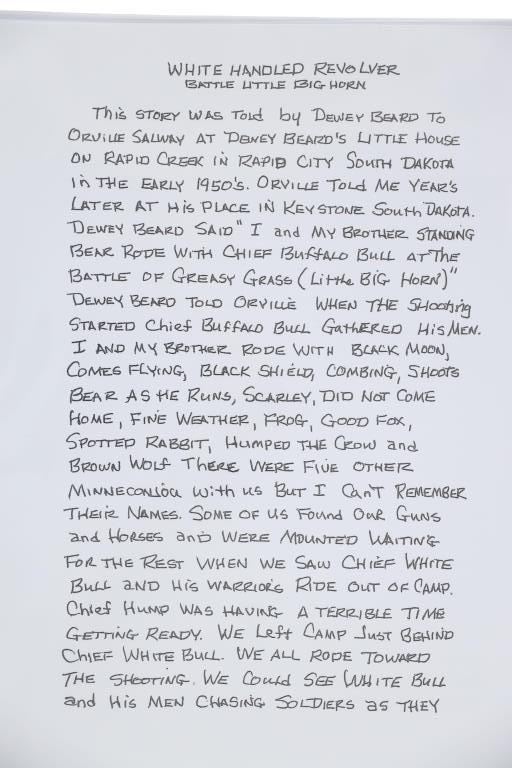 WHITE HANDLED REVOLVER
BATTLE LITTLE BIG HORN
This STORY WAS TOLD by DEWEY BEARD TO
ORVILLE SALWAY AT DEWEY BEARD'S LITTLE HOUSE
ON RAPID CREEK IN RAPID CITY SOUTH DAKOTA
in THE EARLY 1950'S. ORVILLE TOLD ME YEAR'S
LATER AT His PLACE IN KEYSTONE SOUTH DAKOTA.
DEWEY BEARD SAID "I and MY BROTHER STANDING
BEAR RODE WITH CHIEF BUFFALO BULL AT THE
BATTLE OF GREASY GRASS (Little BIG HORN)"
DEWEY BEARD TOLD ORVILLE WHEN THE SHOOTING
STARTED Chief BUFFALO BULL GATHERED His MEN.
I AND MY BROTHER RODE WITH BLACK MOON,
COMES FLYING, BLACK SHIELD, COMBING, SHOOTS
BEAR AS HE RUNS, SCARLEY, DID NOT COME
HOME, FINE WEATHER, FROG, GOOD FOX,
SPOTTED RABBIT, HUMPED THE CROW and
BROWN WOLF THERE WERE FIVE OTHER
MINNECONJOU WITH US BUT I CAN'T REMEMBER
THEIR NAMES. SOME OF US FOUND OUR GUNS
and HORSES and WERE MOUNTED WAITING
FOR THE REST WHEN WE SAW CHIEF WHITE
BULL AND His WARRIORS RIDE OUT OF CAMP.
Chief HUMP WAS HAVING A TERRIBLE TIME
GETTING READY. WE LEFT CAMP JUST BEHIND
CHIEF WHITE BULL. WE ALL RODE TOWARD
THE SHOOTING. WE COULD SEE WHITE BULL
and His MEN CHASING SOLDIERS as THEY